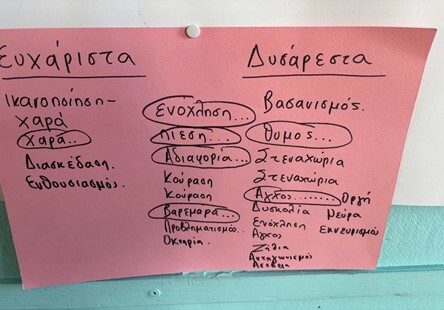 Ευχάριστα
Ικανοποίηση-
χαρά
Χαρά..
Διασκέδαση.
Ενθουσιασμός.
Ενόχληση...
Πίεση...
Αδιαφορία...
Κούραση
Κούραση
Βαρεμάρα...
Προβληματισμός..
Οκνηρία.
Δυσάρεστα
Βασανισμός.
Θυμός...
Στεναχώρια
Στεναχώρια
Άγχος....... Οργή
Δυσκολία Νεύρα
Ενόχληση Εκνευρισμός
Άγχος
Ζήλια
Ανταγωνισμός